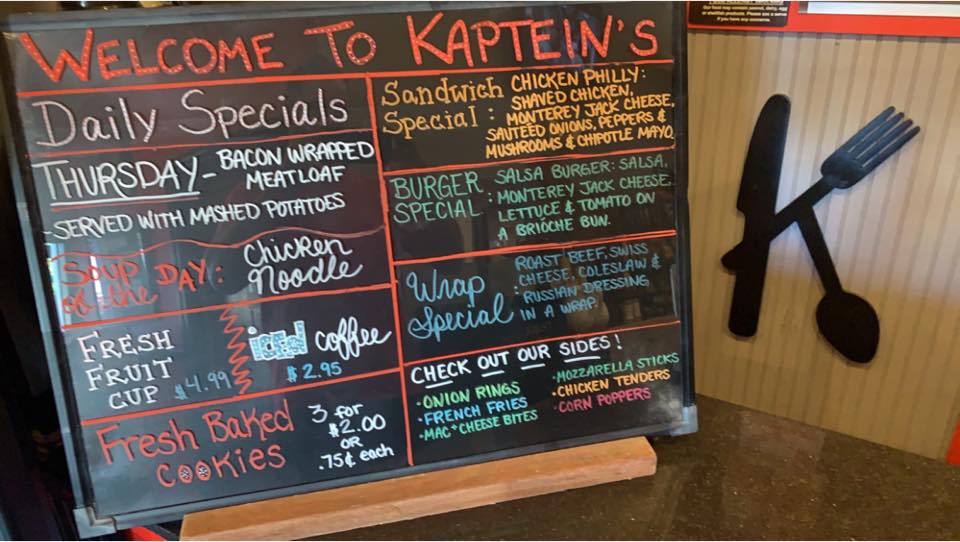 WELCOME TO KAPTEIN'S
Daily Specials
THURSDAY - BACON WRAPPED
MEATLOAF
-SERVED WITH MASHED POTATOES
SOUP OF the DAY:
Chicken
Noodle
FRESH
FRUIT
CUP $4.99
iced coffee
$2.95
Fresh Baked
COOKIES
3 for
$2.00
OR
.75¢ each
Sandwich
Special:
CHICKEN PHILLY:
SHAVED CHICKEN,
MONTEREY JACK CHEESE,
SAUTEED ONIONS, PEPPERS &
MUSHROOMS & CHIPOTLE MAYO.
BURGER
SPECIAL:
SALSA BURGER: SALSA,
MONTEREY JACK CHEESE,
LETTUCE & TOMATO ON
A BRIOCHE BUN.
Wrap
Special:
ROAST BEEF, SWISS
CHEESE, COLESLAW &
RUSSIAN DRESSING
IN A WRAP.
CHECK OUT OUR SIDES!
•ONION RINGS
•FRENCH FRIES
•MAC+CHEESE BITES
•MOZZARELLA STICKS
•CHICKEN TENDERS
•CORN POPPERS
Our food may contain peanut, dairy, egg
or shellfish products. Please see a server
if you have any concerns.